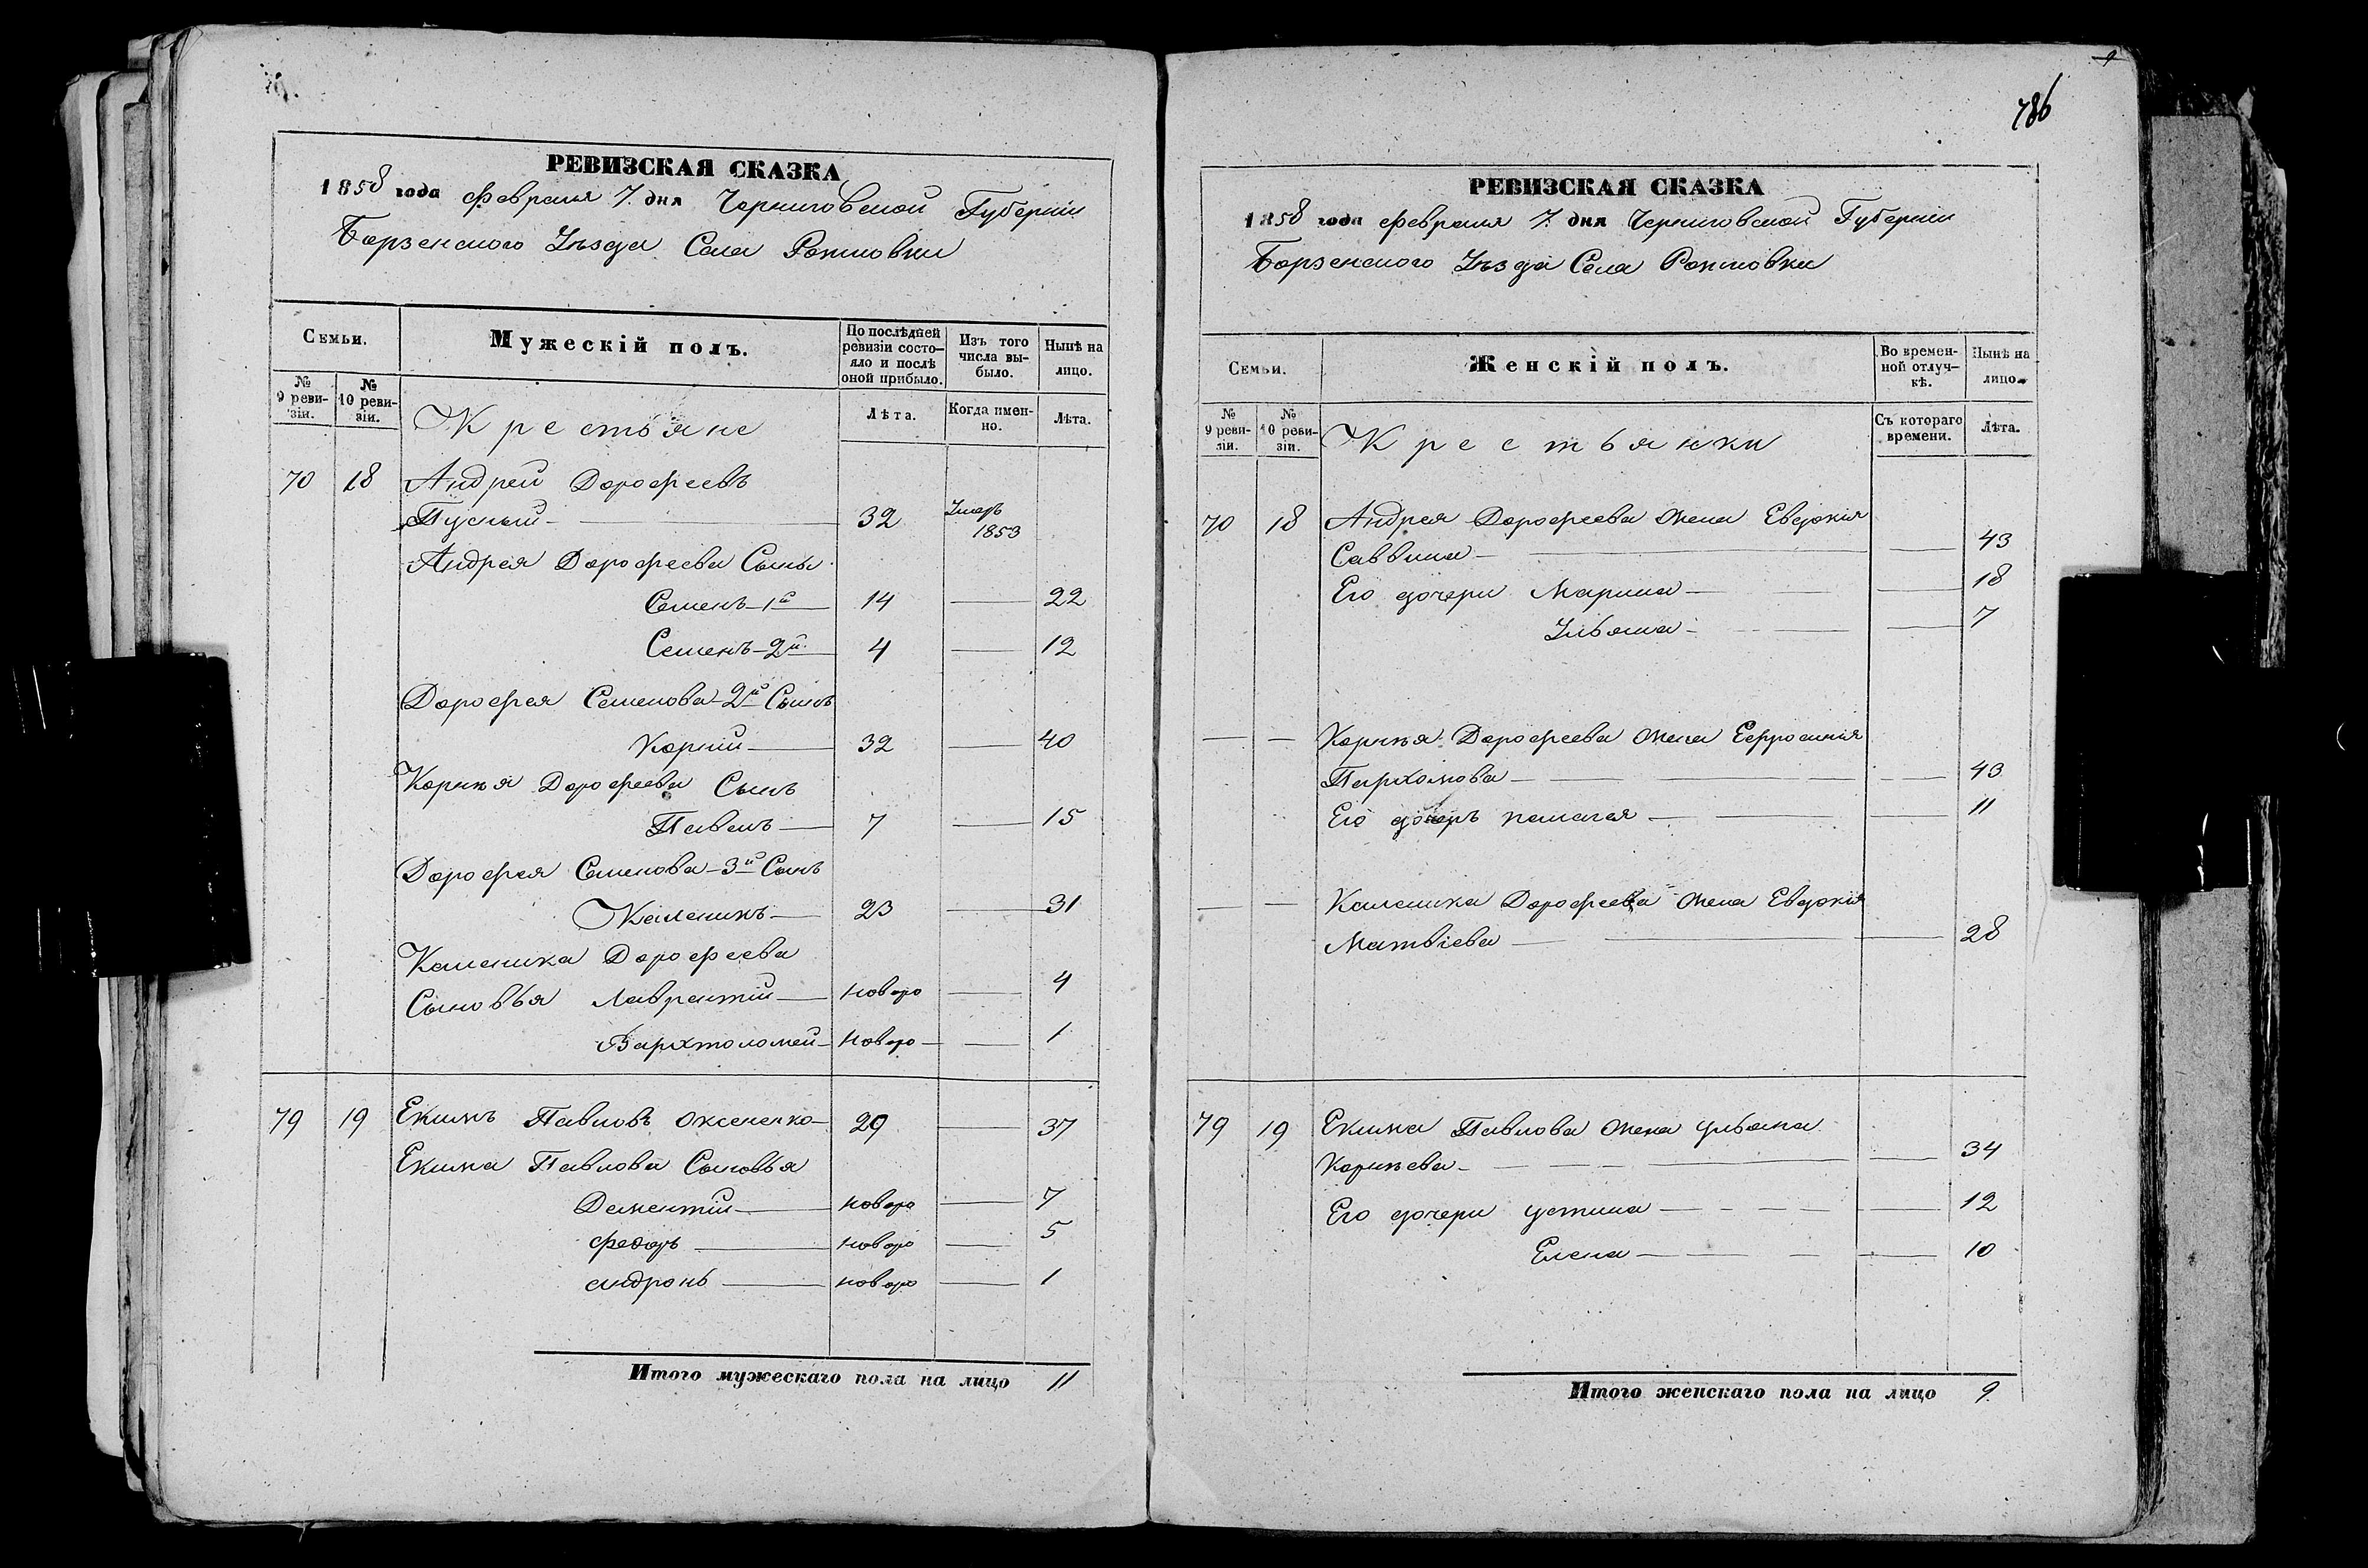 РЕВИЗСКАЯ СКАЗКА
1858 года Февраля 7. дня Черниговской Губерніи
Борзенского Уѣзда Села Рожновки
Семьи.
Мужескій полъ.
По послѣдней ревизіи состо-яло и послѣ оной прибыло.
Изъ того числа вы-было.
Нынѣ на лицо.
№ 9 реви-зіи.
№ 10 реви-зіи.
Крестьяне
Лѣта.
Когда имен-но.
Лѣта.
70 18 Андрей Дорофеевъ
32 Умеръ 1853
Андрея Дорофеева Сыны
Семенъ-1й 14 — 22
Семенъ-2й 4 — 12
Дорофея Семенова-2й Сынъ
Корній — 32 — 40
Корнѣя Дорофеева Сынъ
Павелъ — 7 — 15
Дорофея Семенова-3й Сынъ
Каленикъ — 23 — 31
Каленика Дорофеева
Сыновья Лаврентій — новоро — 4
Вархтоломей — новоро — 1
79 19 Екимъ Павловъ Оксененко — 29 — 37
Екима Павлова Сыновья
Дементій — новоро — 7
Федоръ — новоро — 5
андронъ — новоро — 1
Итого мужескаго пола на лицо 11
9
786
РЕВИЗСКАЯ СКАЗКА
1858 года Февраля 7. дня Черниговской Губерніи
Борзенского Уѣзда Села Рожновки
Семьи.
Женскій полъ.
Во времен-ной отлуч-кѣ.
Нынѣ на лицо.
№ 9 реви-зіи.
№ 10 реви-зіи.
Крестьянки
Съ котораго времени.
Лѣта.
70 18 Андрея Дорофеева жена Евдокія
Саввина — — 43
Его дочери Марина — — 18
Ульяна — — 7
— — Корнѣя Дорофеева жена Ефросинія
Пархомова — — 43
Его дочеръ пелагея — — 11
— — Каленика Дорофеева жена Евдокія
Матвіева — — 28
79 19 Екима Павлова жена ульяна
Корнѣева — — 34
Его дочери устина — — 12
Елена — — 10
Итого женскаго пола на лицо 9